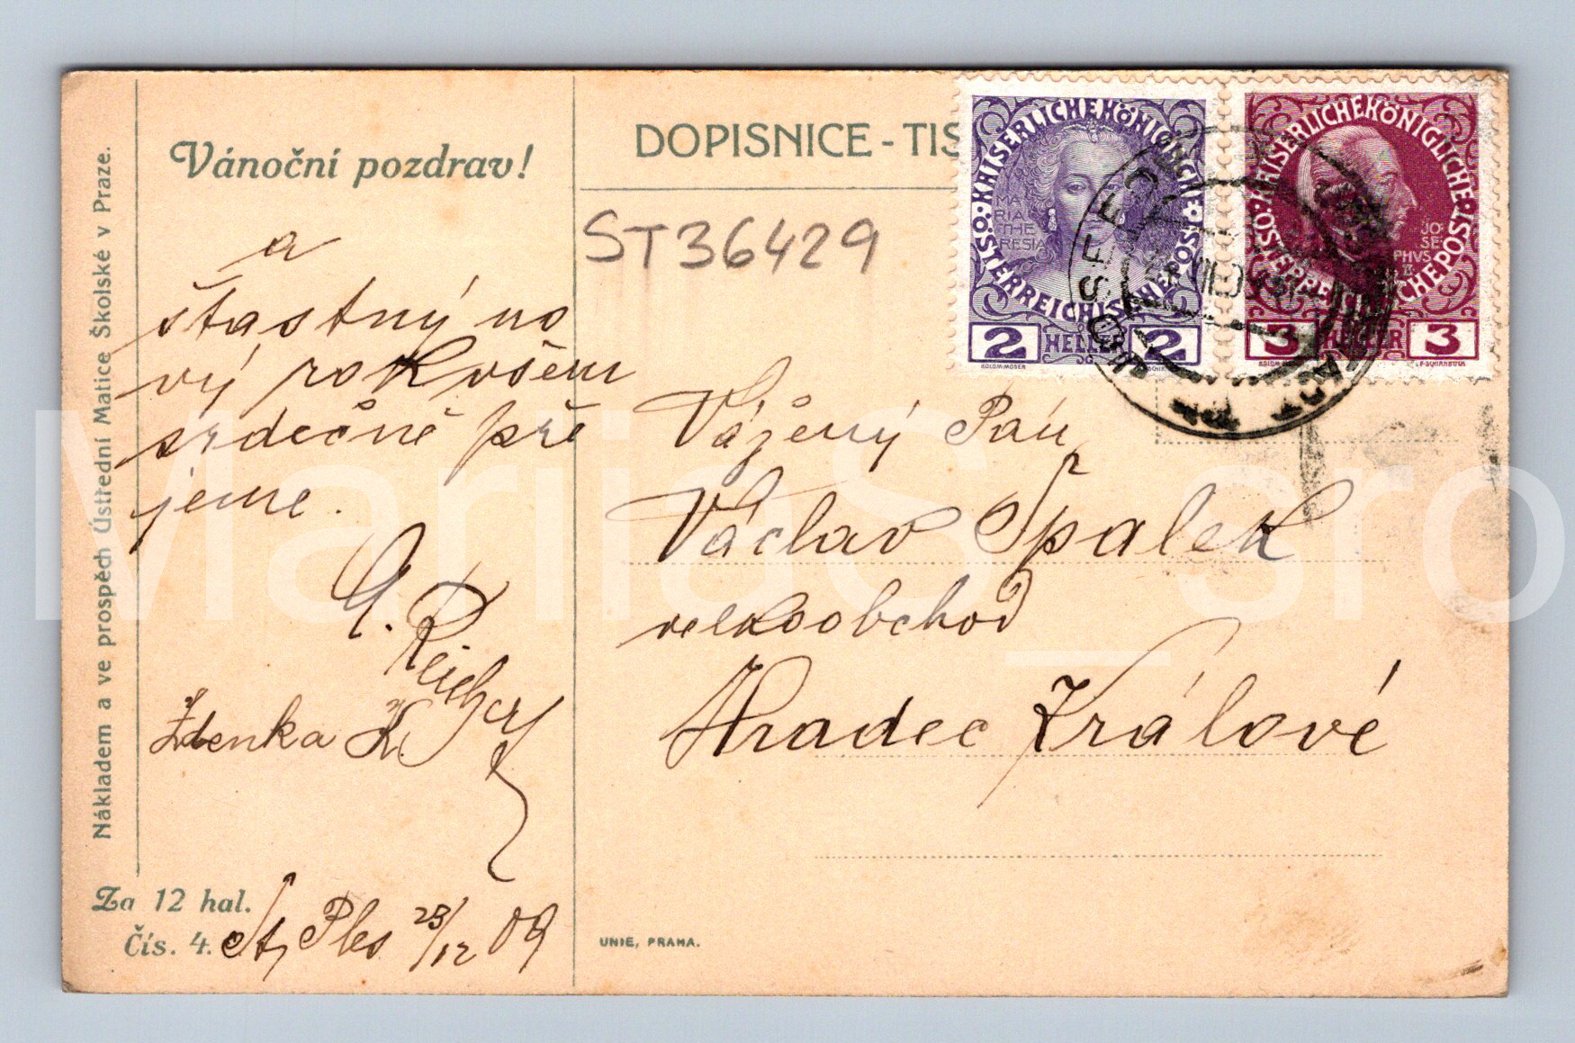 Nákladem a ve prospěch Ústřední Matice Školské v Praze.
Vánoční pozdrav!
a
šťastný no
vý rok všem
srdečně pře
jeme.
Zdenka
Za 12 hal.
Čís. 4.
St. Ples 23/12 09
DOPISNICE - TIS
ST36429
Vážený Pán
Václav Špalek
velkoobchod
Hradec Králové
UNIE, PRAHA.
KAISERLICHE KÖNIGLICHE ÖSTERREICHISCHE POST
MARIA THERESIA
2 HELLER 2
KAISERLICHE KÖNIGLICHE ÖSTERREICHISCHE POST
JOSEPHVS II
3 HELLER 3
MarilaS_sro